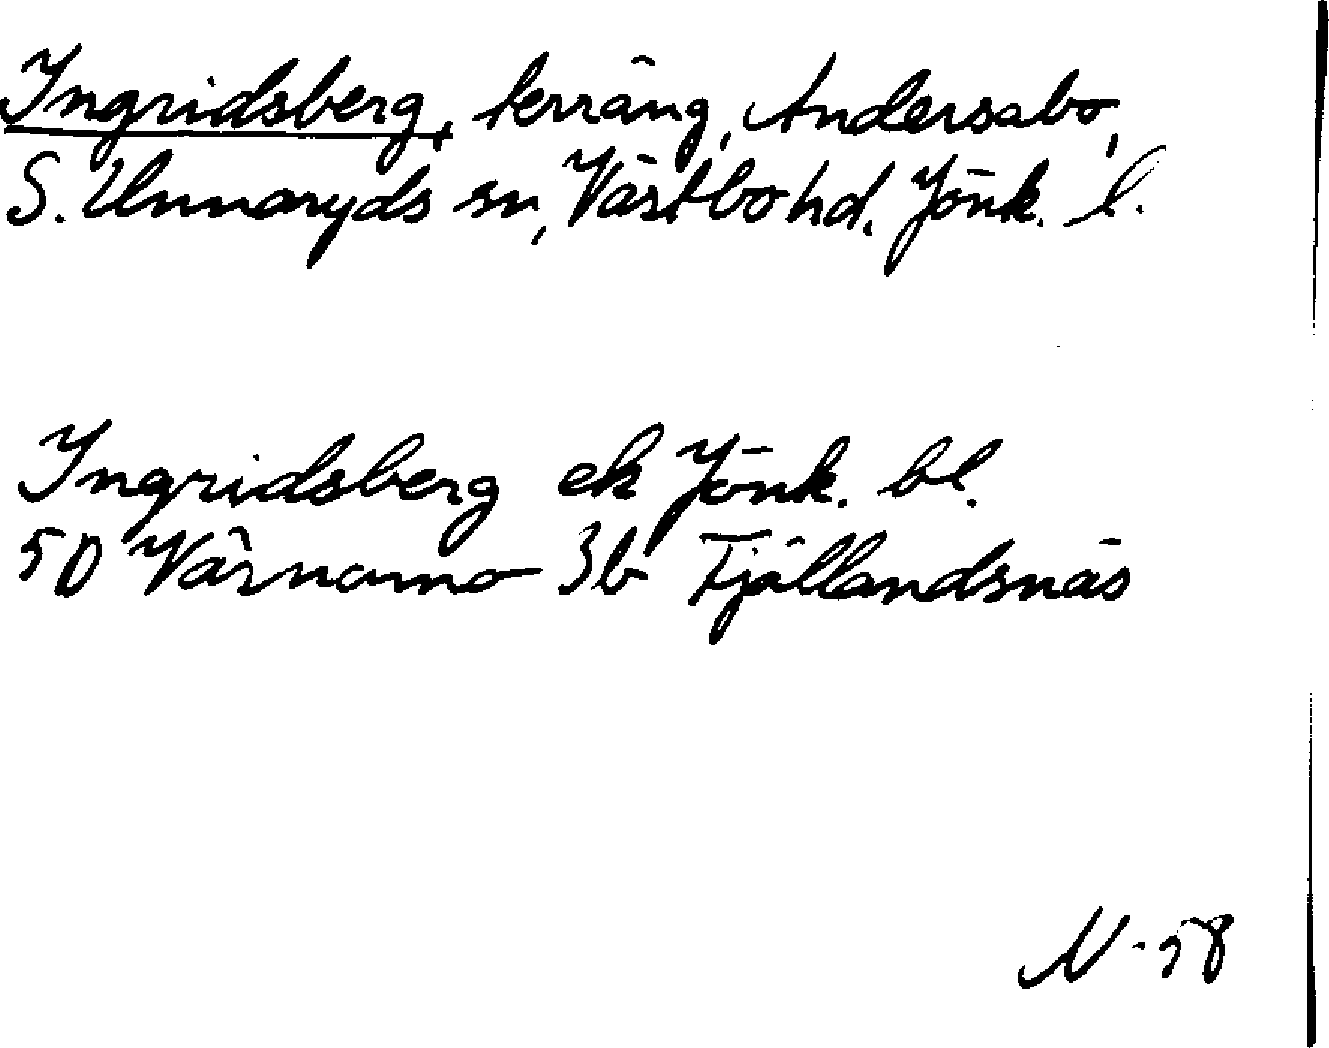 Ingridsberg, terräng, Andersabo,
S. Unnaryds sn, Västbo hd. Jönk. l.
Ingridsberg ek Jönk. bl.
5D Värnamo 3b Fjällandsnäs
N-58